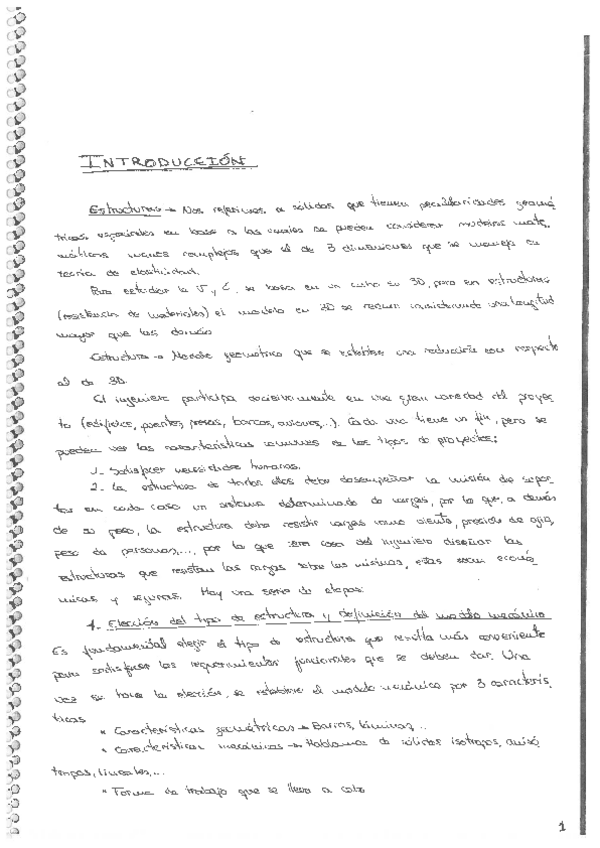 INTRODUCCIÓN
Estructuras → Nos referimos a sólidos que tienen peculiaridades geomé
tricas especiales en base a las cuales se pueden considerar modelos mate
máticos menos complejos que el de 3 dimensiones que se maneja en
teoría de elasticidad.
Para estudiar la J y C, se basa en un cubo en 3D, pero en estructuras
(resistencia de materiales) el modelo en 3D se reduce una longitud
mayor que las demás
Estructura → Modelo geométrico que se establece una reducción con respecto
al de 3D.
El ingeniero participa decisivamente en una gran variedad del proyec
to (edificios, puentes, presas, barcos, aviones,..). Cada uno tiene un fin, pero se
pueden ver las características comunes de los tipos de proyectos:
1- Satisfacer necesidades humanas.
2- La estructura de todos ellos debe desempeñar la misión de sopor
tar en cada caso un sistema determinado de cargas, por lo que, a demás
de su peso, la estructura debe resistir cargas como viento, presión de agua,
peso de personas,..., por lo que será cosa del ingeniero diseñar las
estructuras que resistan las cargas sobre las mismas, estas sean econó
micas y seguras. Hay una serie de etapas:
1- Elección del tipo de estructura y definición del modelo mecánico
Es fundamental elegir el tipo de estructura que resulta más conveniente
para satisfacer los requerimientos funcionales que se deben dar. Una
vez se hace la elección, se establece el modelo mecánico por 3 caracterís
ticas
* Características geométricas → Barras, láminas, ..
* Características mecánicas → Hablamos de sólidos isotropos, anisó
tropos, lineales,...
* Forma de trabajo que se lleva a cabo
1